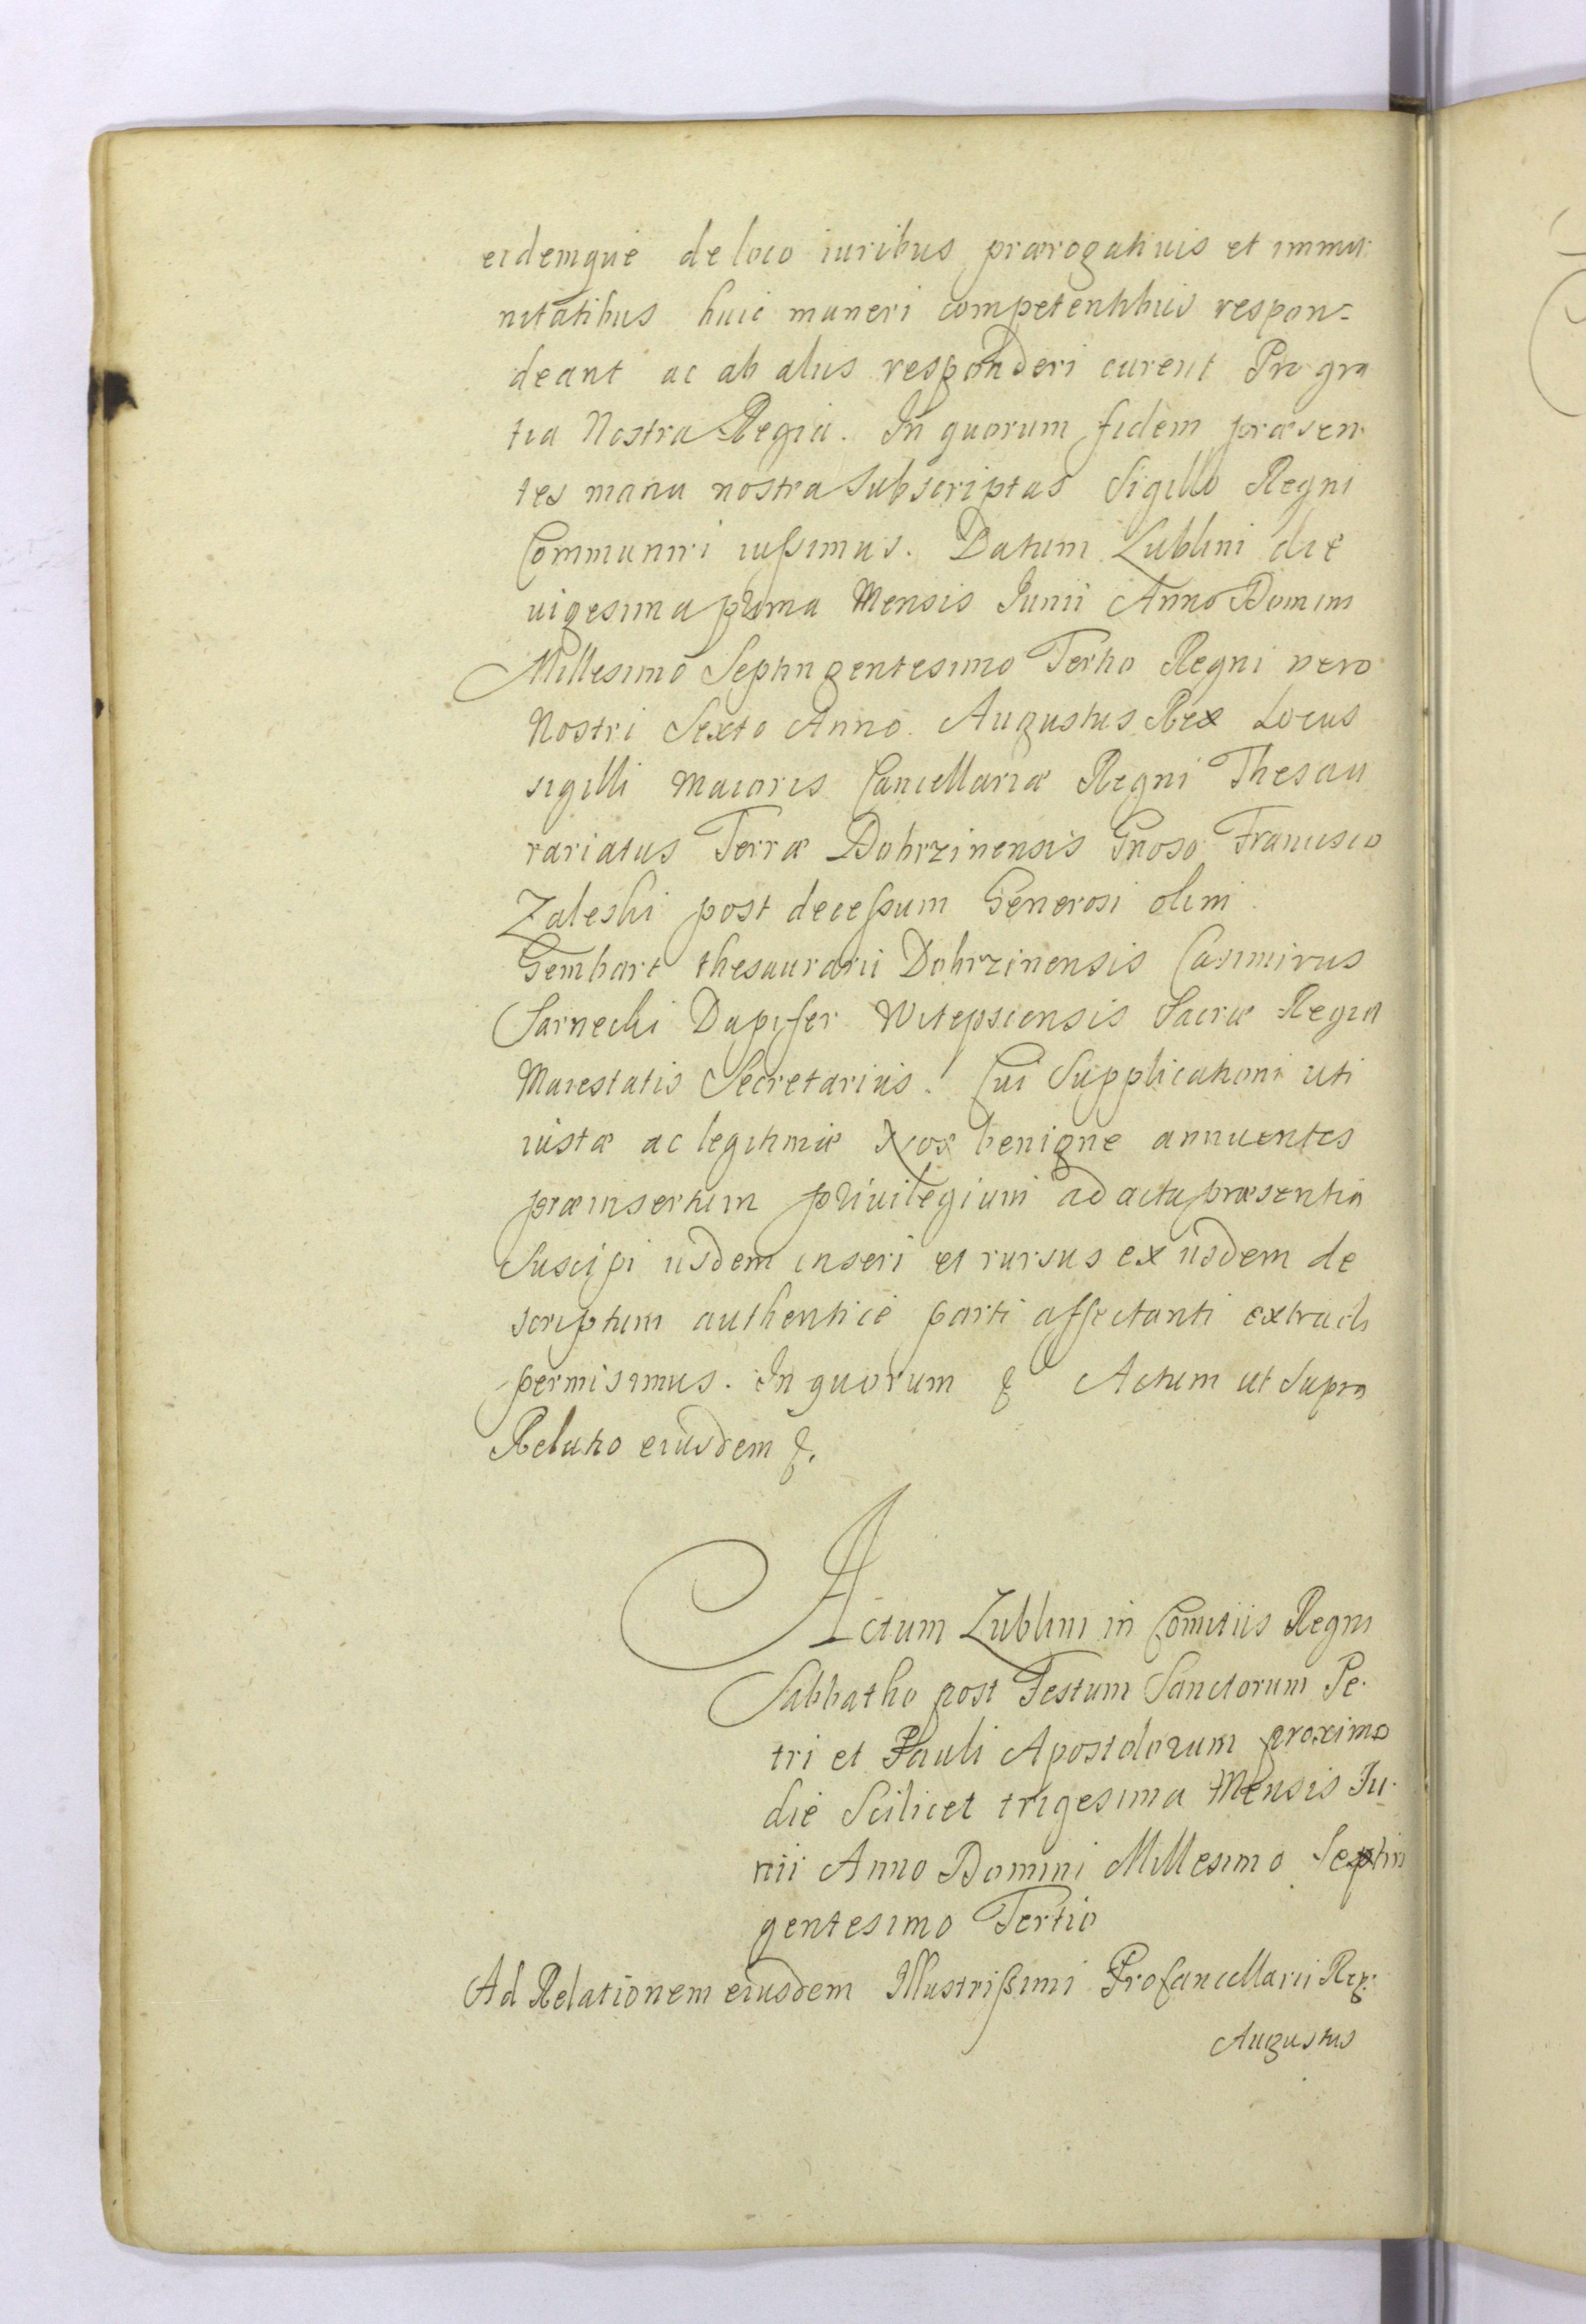 eidemque de loco iuribus prærogativis et immu-
nitatibus huic muneri competentibus respon=
deant ac ab aliis responderi curent Pro gra
tia Nostra Regia. In quorum fidem præsen-
tes manu nostra subscriptas Sigillo Regni
Communiri iussimus. Datum Lublini die
uigesima prima Mensis Junii Anno Domini
Millesimo Septingentesimo Tertio Regni vero
Nostri Sexto Anno. Augustus Rex Locus
sigilli Maioris Cancellariæ Regni Thesau
rariatus Terræ Dobrzinensis Gnoso Francisco
Zaleski post decessum Generosi olim
Gembart thesaurarii Dobrzinensis Casimirus
Sarnecki Dapifer Witepscensis Sacræ Regia
Maiestatis Secretarius. Cui Supplicationi uti
iustæ ac legitimæ Nos benigne annuentes
præinsertum privilegium ad acta præsentia
Suscipi iisdem inseri et rursus ex iisdem de
scriptum authentice parti affectanti extradi
permisimus. In quorum & Actum ut supra
Relatio eiusdem &.
Actum Lublini in Comitiis Regni
Sabbatho post Festum Sanctorum Pe-
tri et Pauli Apostolorum proximo
die Scilicet trigesima Mensis Ju-
nii Anno Domini Millesimo Septin
gentesimo Tertio
Ad Relationem eiusdem Illustrissimi ProCancellarii Reg:
Augustus